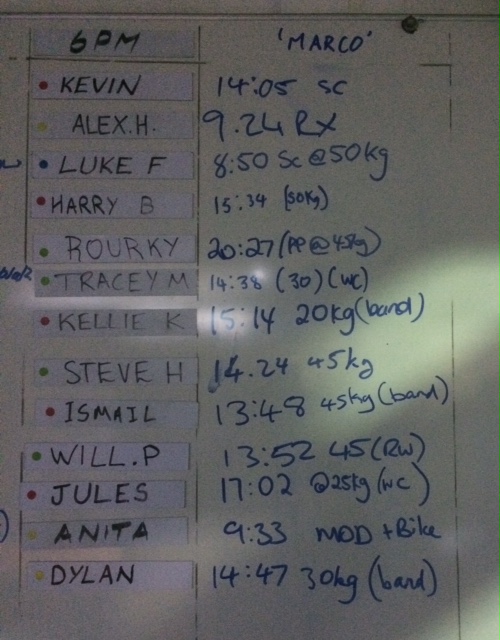 6PM 'MARCO'
KEVIN 14:05 SC
ALEX.H. 9.24 RX
LUKE F 8:50 Sc @50kg
HARRY B 15:34 (50kg)
ROURKY 20:27 (PP@45kg)
TRACEY M 14:38 (30) (WC)
KELLIE K 15:14 20kg (band)
STEVE H 14.24 45kg
ISMAIL 13:48 45kg (band)
WILL.P 13:52 45 (RW)
JULES 17:02 @25kg (WC)
ANITA 9:33 MOD + Bike
DYLAN 14:47 30kg (band)